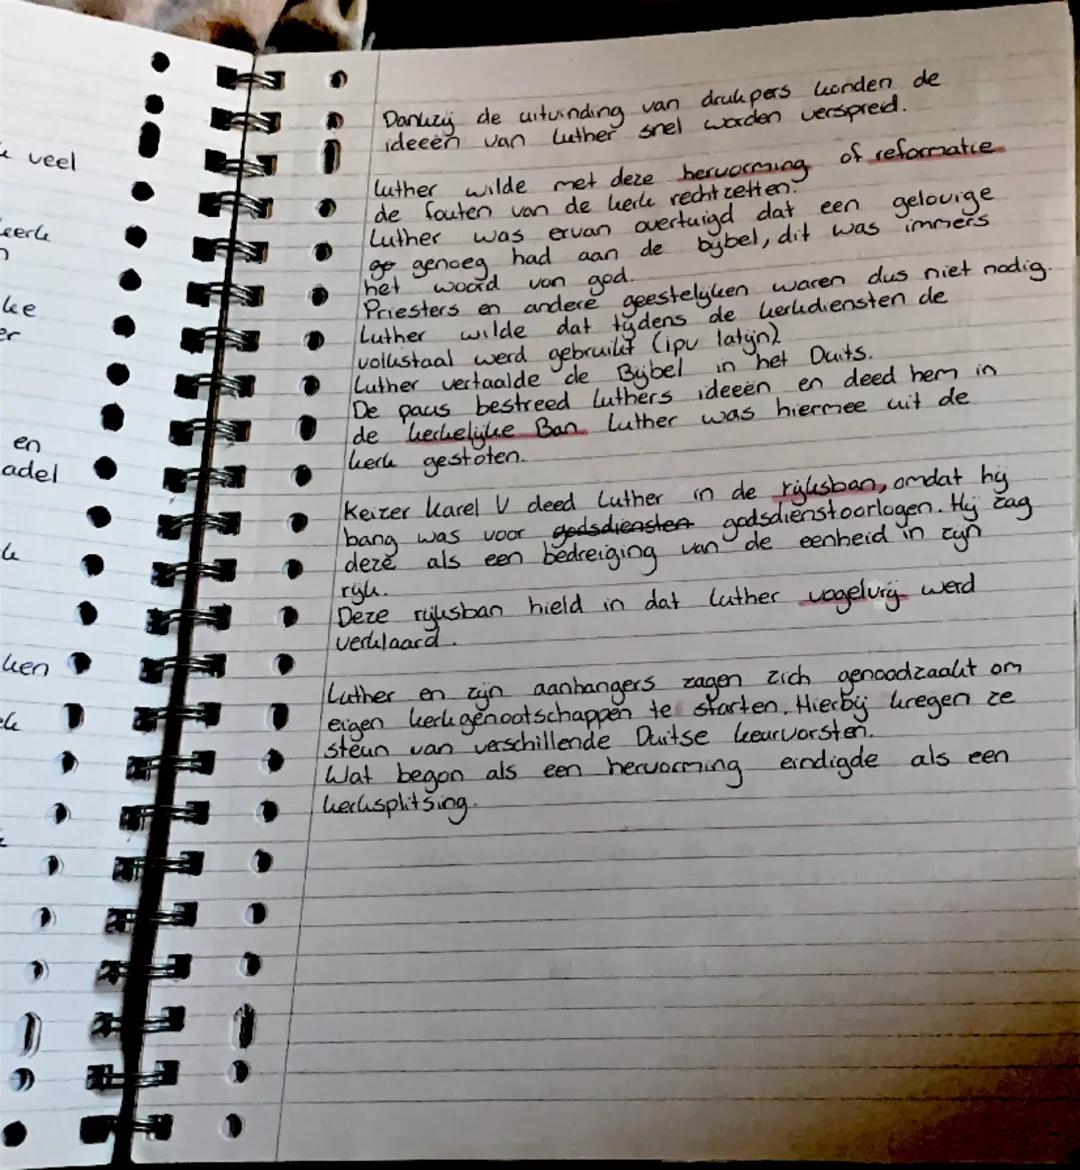 veel
eerk
ke
er
en
adel
ken
Dankzij de uitvinding van drukpers konden de
ideeën van Luther snel worden verspreid.
Luther wilde met deze hervorming of reformatie
de fouten van de kerk recht zetten.
Luther was ervan overtuigd dat een gelovige
ge genoeg had aan de bijbel, dit was immers
het woord van god.
Priesters en andere geestelijken waren dus niet nodig.
Luther wilde dat tijdens de kerkdiensten de
volkstaal werd gebruikt (ipv latijn)
Luther vertaalde de Bijbel in het Duits.
De paus bestreed Luthers ideeën en deed hem in
de kerkelijke Ban. Luther was hiermee uit de
kerk gestoten.
Keizer Karel V deed Luther in de rijksban, omdat hij
bang was voor godsdiensten godsdienstoorlogen. Hij zag
deze als een bedreiging van de eenheid in zijn
rijk.
Deze rijksban hield in dat Luther vogelvrij werd
verklaard.
Luther en zijn aanhangers zagen zich genoodzaakt om
eigen kerkgenootschappen te starten. Hierbij kregen ze
steun van verschillende Duitse keurvorsten.
Wat begon als een hervorming eindigde als een
kerksplitsing.